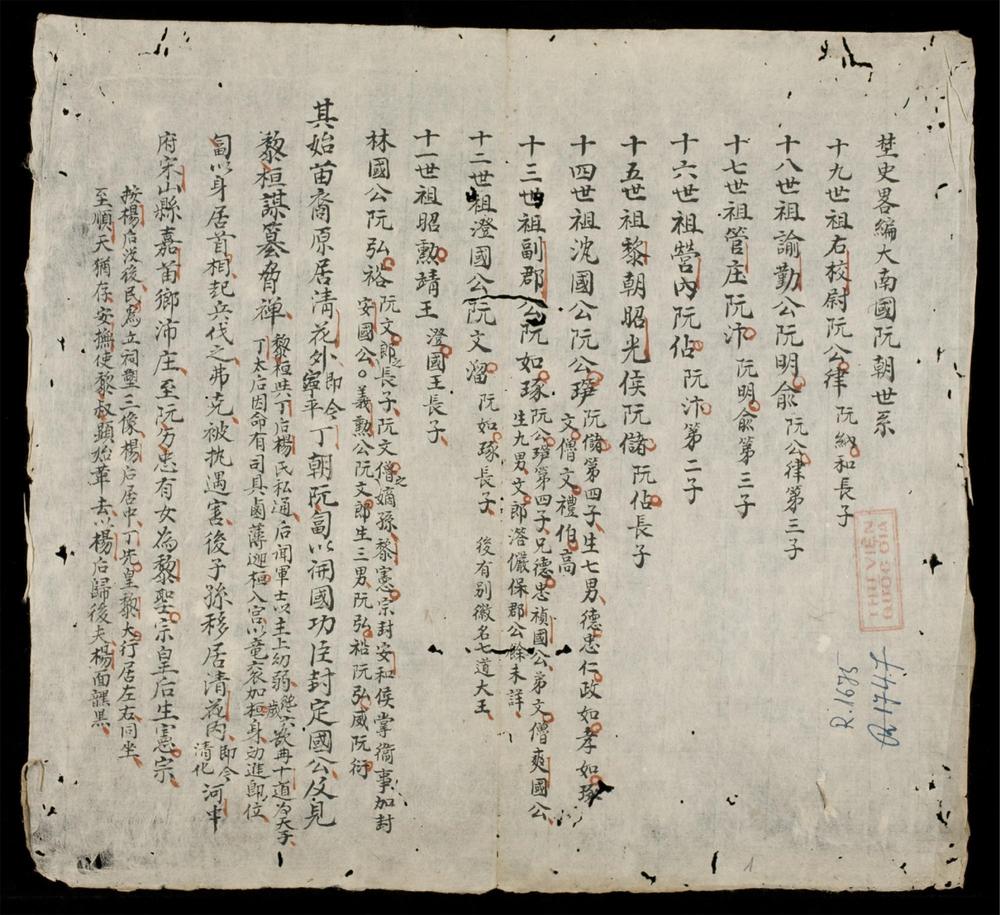 埜史畧編大南國阮朝世系
十九世祖右校尉阮公律 阮納和長子
十八世祖諭勤公阮明俞 阮公律第三子
十七世祖管庄阮汴 阮明俞第三子
十六世祖營內阮佔 阮汴第二子
十五世祖黎朝昭光侯阮儲 阮佔長子
十四世祖沈國公阮公 阮儲第四子生七男德忠仁政如孝如琢文僧文禮伯高
十三世祖副郡公阮如琢 阮公第四子兄德忠禎國公弟文僧爽國公生九男文郎澘儼保郡公餘未詳
十二世祖澄國公阮文溜 阮如琢長子 後有別徽名七道大王
十一世祖昭勲靖王 澄國王長子
林國公阮弘裕 阮文郎之長子阮文僧之嫡孫黎憲宗封安和侯掌衛事加封安國公○義勲公阮文郎生三男阮弘裕阮弘威阮衍
其始苗裔原居清花外 即今寧平 丁朝阮匐以開國功臣封定國公及見
黎桓謀簒脅禪 黎桓共丁后楊氏私通后闻軍士以主上幼弱 十道為天子丁太后因命有司具鹵薄迎桓入宮以竜衣加桓身劝進即位
匐以身居首相起兵伐之弗克被执遇害後子孫移居清花內 即今清化 河中
府宋山縣嘉苗鄉沛庄至阮劳忠有女為黎聖宗皇后生憲宗
按楊后没後民為立祠塑三像楊后居中丁先皇黎大行居左右同坐
至順天猶存安撫使黎叔顯始革去以楊后歸後夫楊面黑
THƯ VIỆN
QUỐC GIA
R.1685
A 1747
1